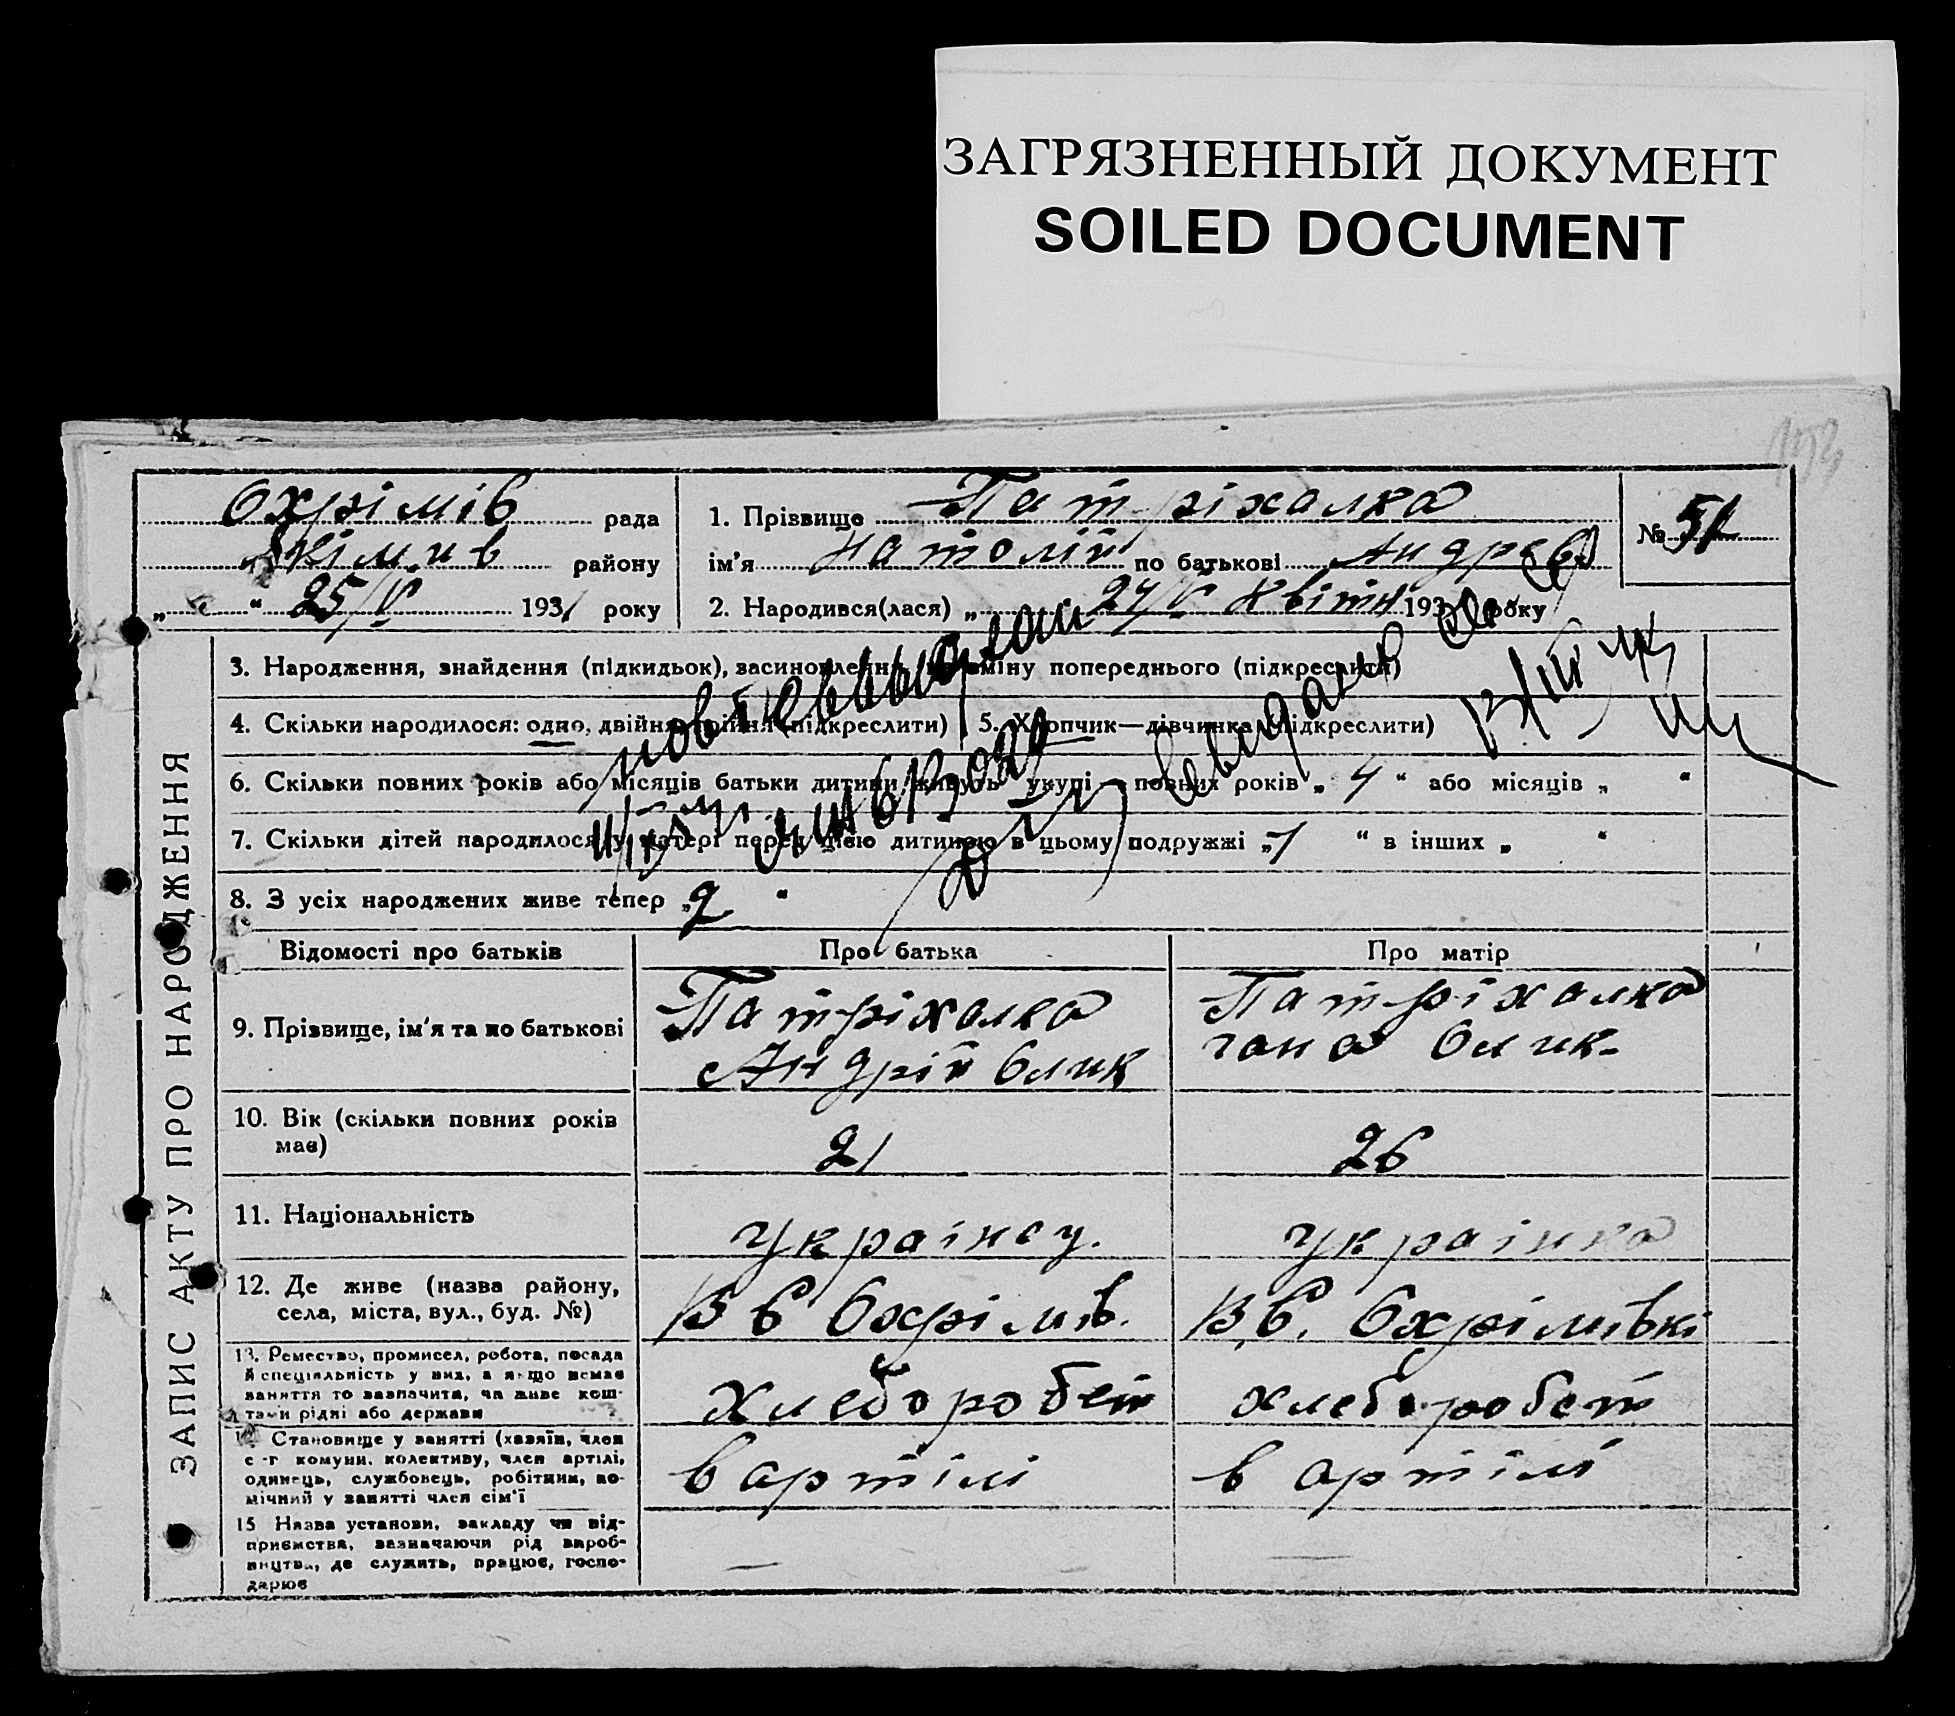 ЗАГРЯЗНЕННЫЙ ДОКУМЕНТ
SOILED DOCUMENT
Охрімів рада
Якімив району
„ “ 25/V 1931 року
1. Прізвище Патріхалка
ім'я Натолій по батькові Андреев
2. Народився(лася) „ 24/V Квітн 193 року
№ 51
ЗАПИС АКТУ ПРО НАРОДЖЕННЯ
3. Народження, знайдення (підкидьок), засиновлення, заміну попереднього (підкреслити)
4. Скільки народилося: одно, двійня, трійня (підкреслити)
5. Хлопчик—дівчинка (підкреслити)
6. Скільки повних років або місяців батьки дитини живуть укупі — повних років „ 4 “ або місяців „ “
7. Скільки дітей народилося у матері перед цією дитиною в цьому подружжі „ 1 “ в інших „ “
8. З усіх народжених живе тепер „ 2 “
Відомості про батьків
Про батька
Про матір
9. Прізвище, ім'я та по батькові
Патріхалка
Андрій Олик
Патріхалка
гана Олик-
10. Вік (скільки повних років має)
21
26
11. Національність
украінец.
украінка
12. Де живе (назва району,
села, міста, вул., буд. №)
В с Охрімів.
В с. Охрімивкі
13. Ремество, промисел, робота, посада
й спеціяльність у них, а якщо немає
заняття то зазначити, чи живе кош-
тами рідні або держави
хлеборобет
хлеборобет
14. Становище у занятті (хазяїн, член
с.-г комуни, колективу, член артілі,
одинець, службовець, робітник, по-
мічний у занятті член сім'ї
в артілі
в артілі
15 Назва установи, закладу чи під-
приємства, зазначаючи рід вироб-
ництва, де служить, працює, госпо-
дарює